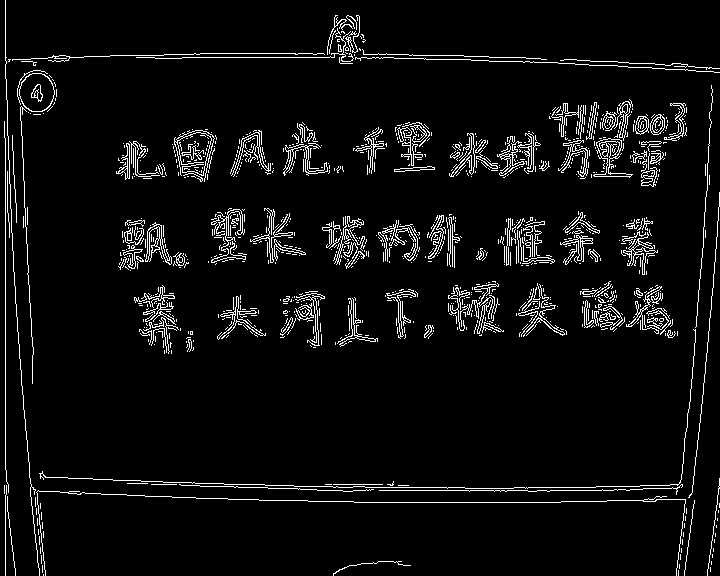 4
41109003
北国风光,千里冰封,万里雪
飘。望长城内外,惟余莽
莽;大河上下,顿失滔滔。